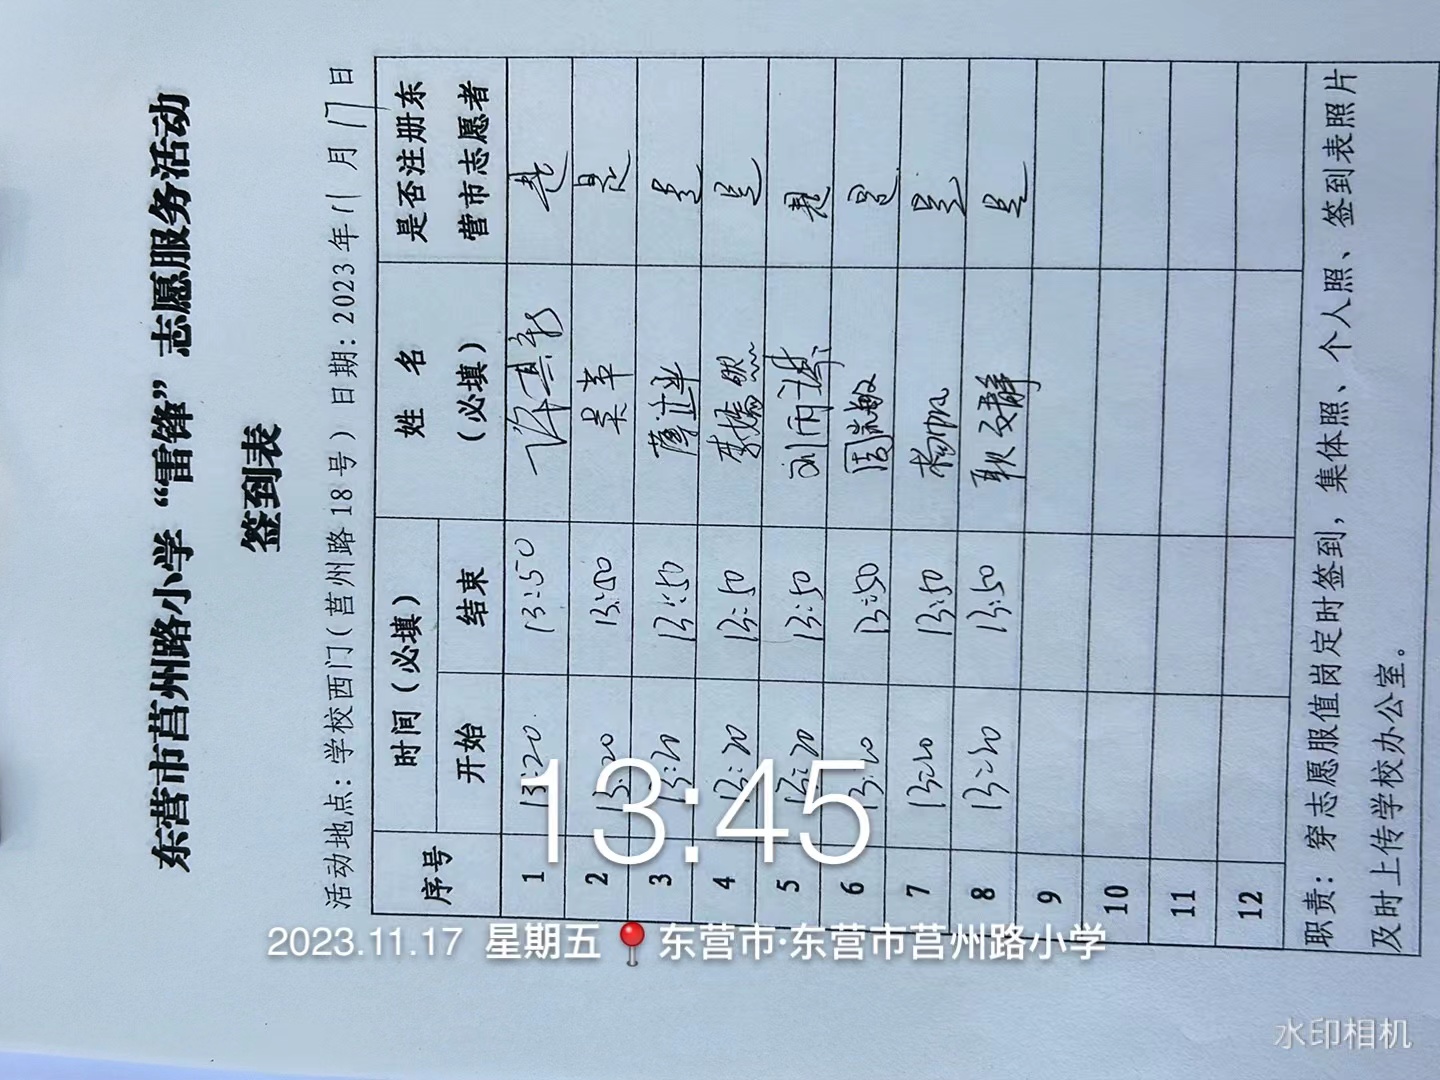 东营市莒州路小学“雷锋”志愿服务活动
签到表
活动地点：学校西门（莒州路18号）日期：2023年11月17日
序号 时间（必填） 姓 名（必填） 是否注册东营市志愿者
开始 结束
1 13:20 13:50 许其新 是
2 13:20 13:50 吴苹 是
3 13:20 13:50 是
4 13:20 13:50 李嫣然 是
5 13:20 13:50 刘雨 是
6 13:20 13:50 周 敏 是
7 13:20 13:50 杨帆 是
8 13:20 13:50 耿文静 是
9
10
11
12
职责：穿志愿服值岗定时签到，集体照、个人照、签到表照片
及时上传学校办公室。
13:45
2023.11.17 星期五 东营市·东营市莒州路小学
水印相机